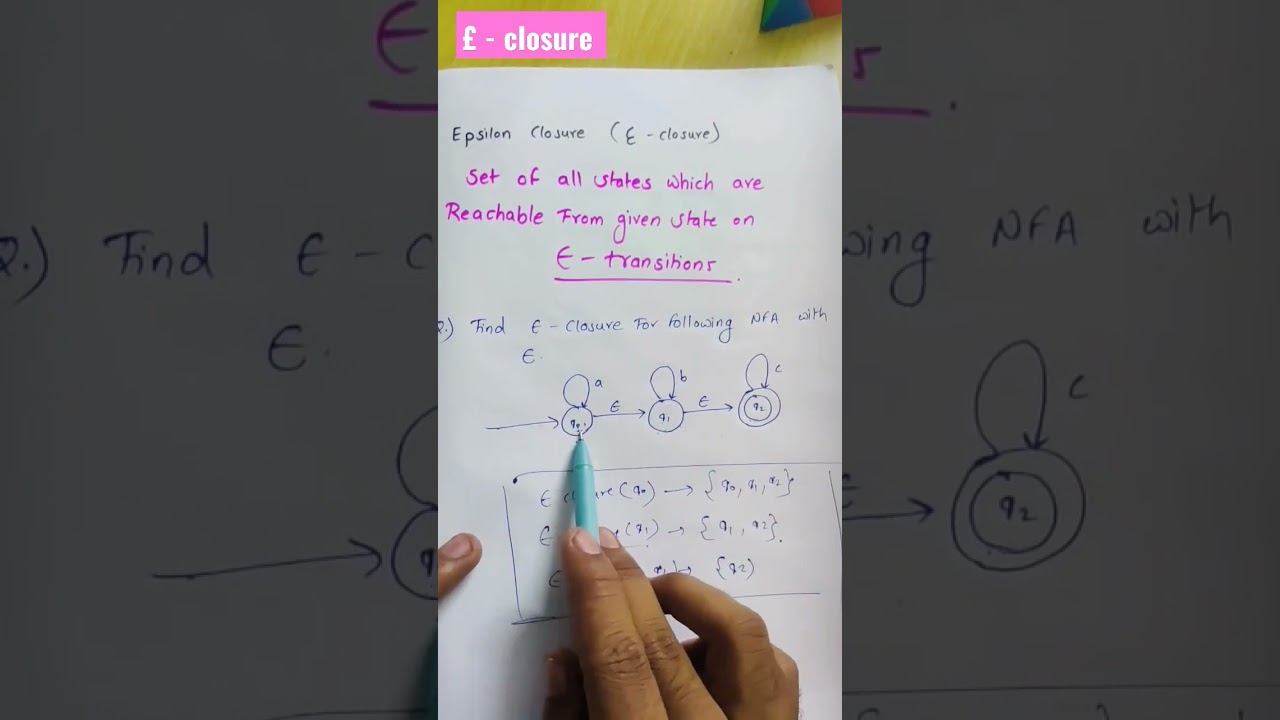 £ - closure
Epsilon Closure (ε-closure)
Set of all states which are
Reachable From given state on
ϵ - transitions.
Find ϵ - Closure For Following NFA with
ϵ.
a b c
ϵ ϵ
q0 q1 q2
ϵ closure(q0) → {q0, q1, q2}
ϵ (q1) → {q1, q2}.
ϵ → {q2}